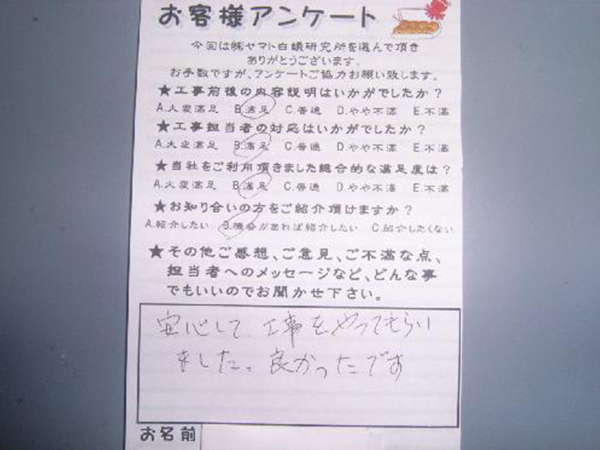 お客様アンケート
今回は㈱ヤマト白蟻研究所を選んで頂き
ありがとうございます。
お手数ですが、アンケートご協力お願い致します。
★工事前後の内容説明はいかがでしたか？
A.大変満足 B.満足 C.普通 D.やや不満 E.不満
★工事担当者の対応はいかがでしたか？
A.大変満足 B.満足 C.普通 D.やや不満 E.不満
★当社をご利用頂きました総合的な満足度は？
A.大変満足 B.満足 C.普通 D.やや不満 E.不満
★お知り合いの方をご紹介頂けますか？
A.紹介したい B.機会があれば紹介したい C.紹介したくない
★その他ご感想、ご意見、ご不満な点、
担当者へのメッセージなど、どんな事
でもいいのでお聞かせ下さい。
安心して、工事をやってもらい
ました。良かったです
お名前